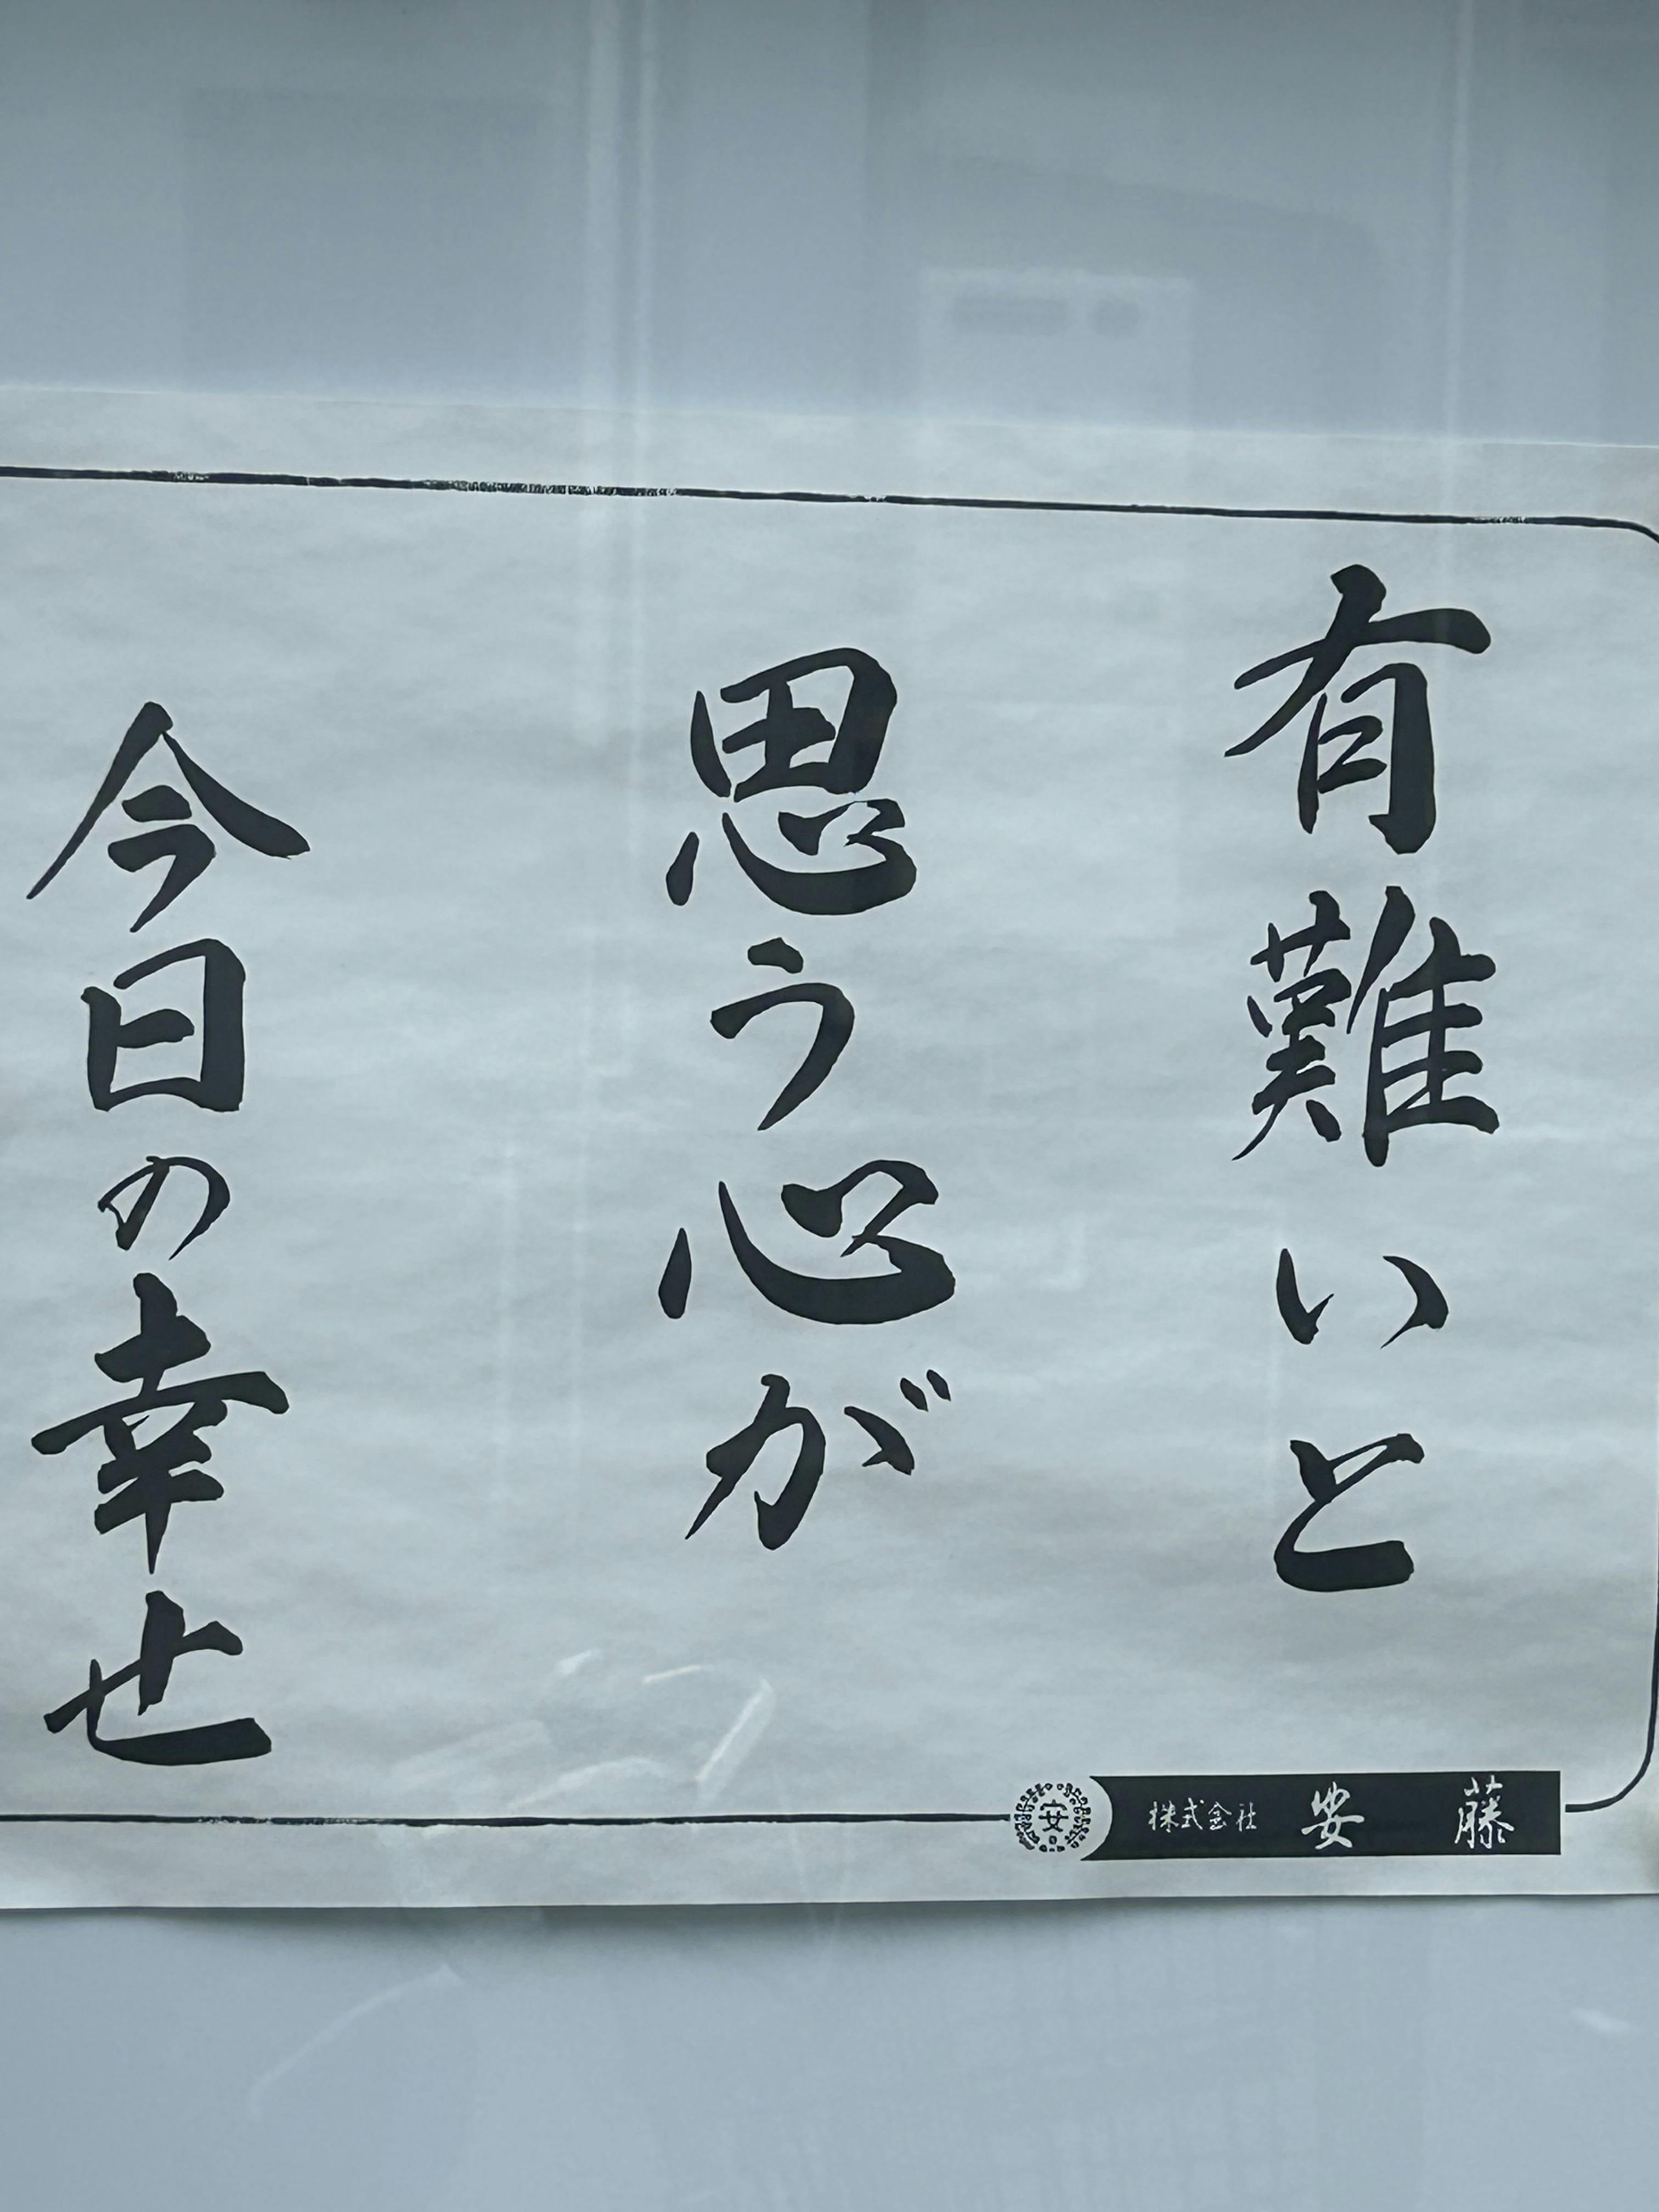 有難いと
思う心が
今日の幸せ
株式会社 安藤
安